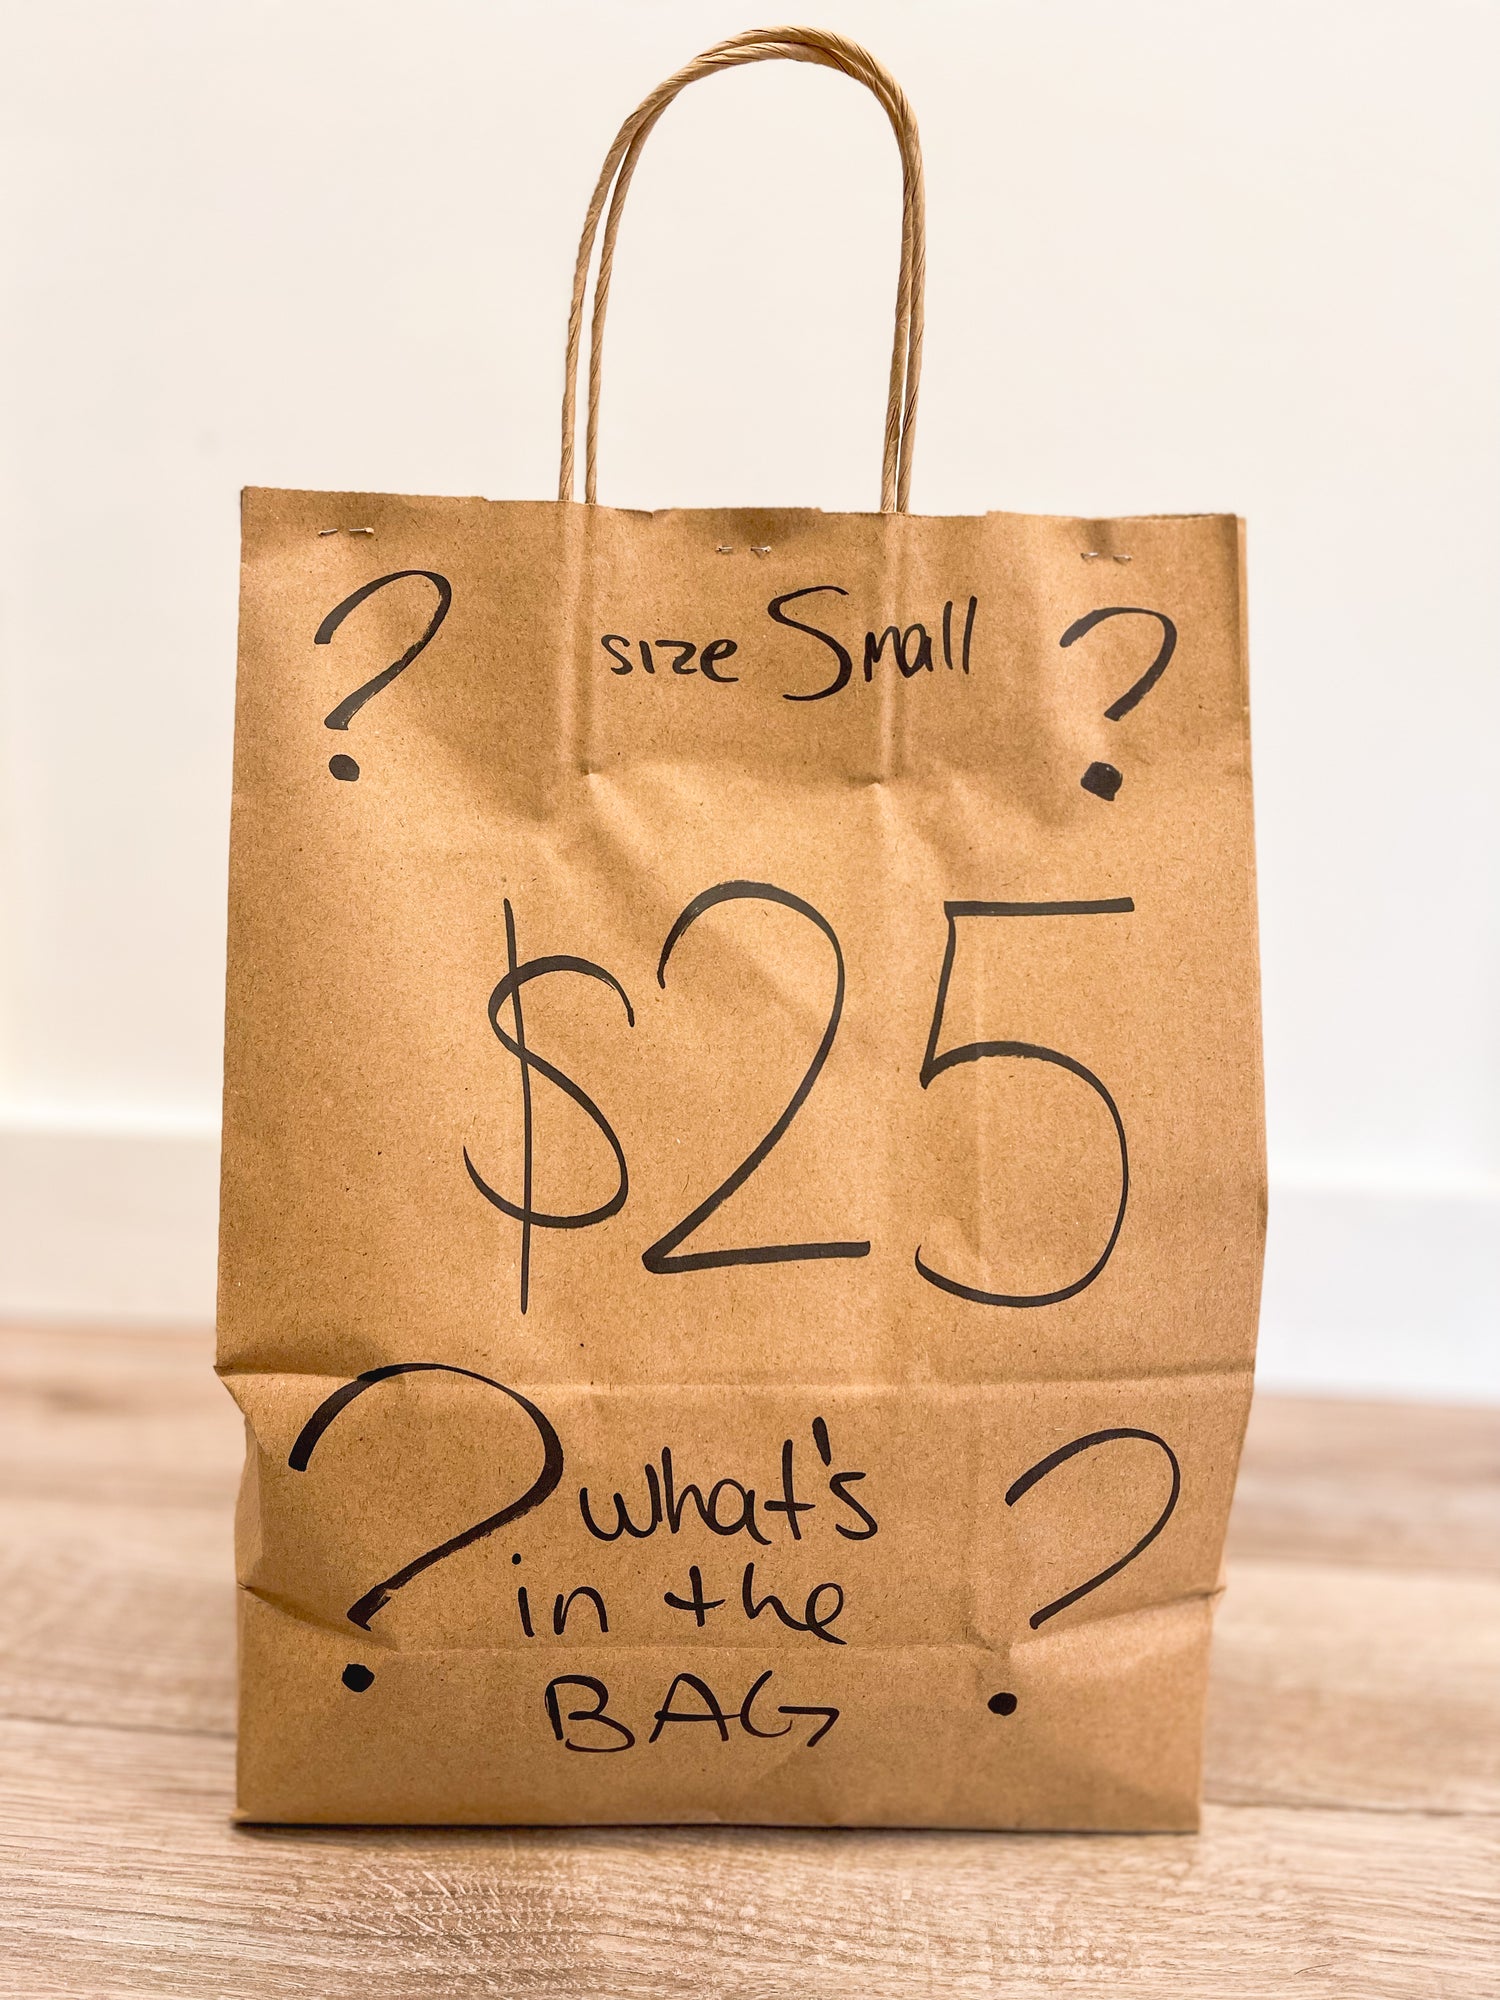 ? size Small ?
$25
? what's ?
in the
BAG